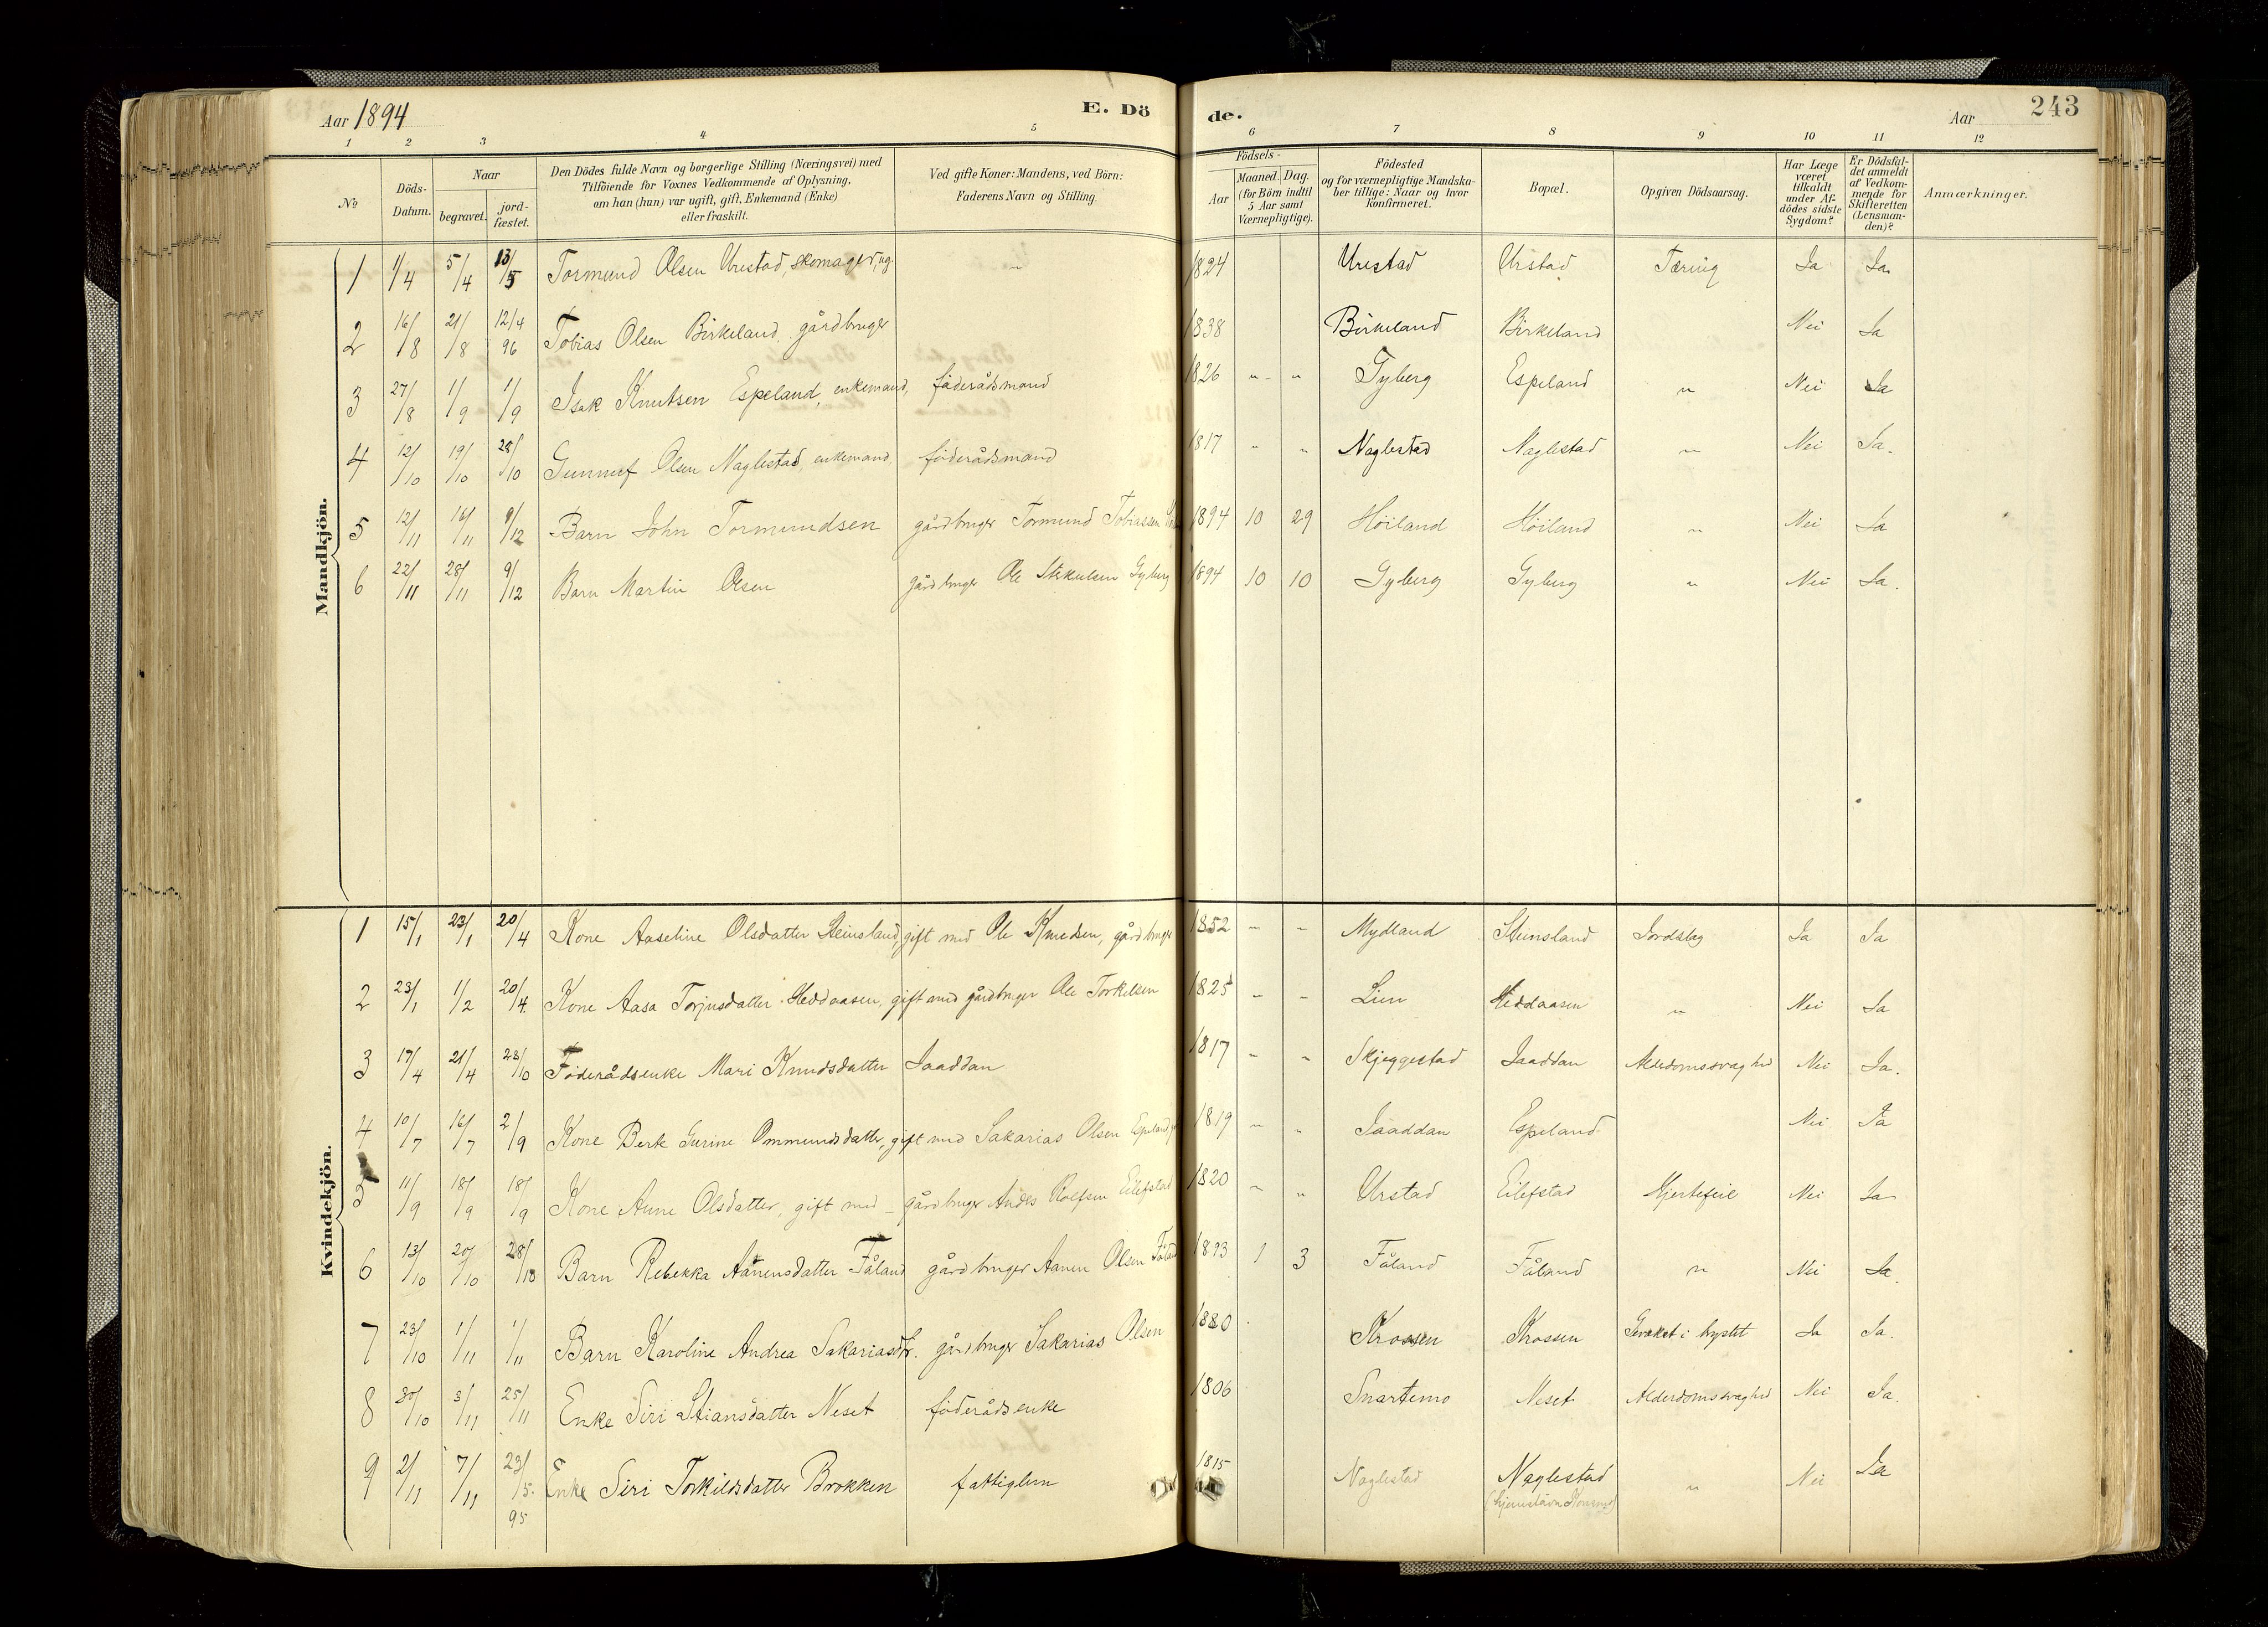 Aar 1894
E. Dö
de.
Aar
243
1 2 3 4 5 6 7 8 9 10 11 12
No
Döds-
Datum.
Naar
begravet.
jord-
fæstet.
Den Dödes fulde Navn og borgerlige Stilling (Næringsvei) med
Tilföiende for Voxnes Vedkommende af Oplysning,
om han (hun) var ugift, gift, Enkemand (Enke)
eller fraskilt.
Ved gifte Koner: Mandens, ved Börn:
Faderens Navn og Stilling.
Födsels-
Aar
Maaned. Dag.
(for Börn indtil
5 Aar samt
Værnepligtige).
Födested
og for værnepligtige Mandska-
ber tillige: Naar og hvor
konfirmeret.
Bopæl.
Opgiven Dödsaarsag.
Har Læge
været
tilkaldt
under Af-
dödes sidste
Sygdom?
Er Dödsfal-
det anmeldt
af Vedkom-
mende for
Skifteretten
(Lensman-
den)?
Anmærkninger.
Mandkjön.
1 1/4 5/4 13/5 Tormund Olsen Urestad, skomager, ug. „ 1824 Urestad Urstad Tæring Ja Ja
2 16/8 21/8 12/4 96 Tobias Olsen Birkeland, gårdbruger 1838 Birkeland Birkeland Nei Ja
3 27/8 1/9 1/9 Isak Knutsen Espeland, enkemand, föderådsmand 1826 „ „ Gyberg Espeland „ Nei Ja
4 12/10 19/10 28/10 Gunnuf Olsen Naglestad, enkemand föderådsmand 1817 „ „ Naglestad Naglestad „ Nei Ja.
5 12/11 16/11 9/12 Barn John Tormundsen gårdbruger Tormund Tobiassen 1894 10 29 Höiland Höiland „ Nei Ja
6 22/11 28/11 9/12 Barn Martin Olsen gårdbruger Ole Gyberg 1894 10 10 Gyberg Gyberg „ Nei Ja.
Kvindekjön.
1 15/1 23/1 20/4 Kone Aaseline Olsdatter Steinsland, gift med Ole Knudsen, gårdbruger 1852 „ „ Mydland Steinsland Jordslag Ja Ja
2 23/1 1/2 20/4 Kone Aasa Torjusdatter Heddaasen, gift med gårdbruger Ole Torkelsen 1825 „ „ Lien Heddaasen „ Nei Ja
3 17/4 21/4 28/10 Föderådsenke Mari Knudsdatter Jaaddan 1817 „ „ Skjeggestad Jaaddan Alderdomssvaghed Nei Ja.
4 10/7 16/7 2/9 Kone Berte Gurine Ommundsdatter, gift med Sakarias Olsen Espeland 1819 „ „ Jaaddan Espeland Nei Ja
5 11/9 18/9 18/9 Kone Anne Olsdatter, gift med gårdbruger Anders Rolfsen Eilefstad 1820 „ „ Urstad Eilefstad Hjertefeil Nei Ja
6 13/10 20/10 28/10 Barn Rebekka Aanensdatter Fåland gårdbruger Aanen Olsen Fåland 1893 1 3 Fåland Fåland „ Nei Ja
7 23/10 1/11 1/11 Barn Karoline Andrea Sakariasdtr. gårdbruger Sakarias Olsen 1880 Krossen Krossen i brystet Ja Ja.
8 30/10 3/11 25/11 Enke Siri Stiansdatter Neset föderådsenke 1806 Snartemo Neset Alderdomssvaghed Nei Ja.
9 2/11 7/11 23/5. 95 Enke Siri Torkildsdatter Brokken fattiglem 1815 Naglestad Naglestad „ Nei Ja